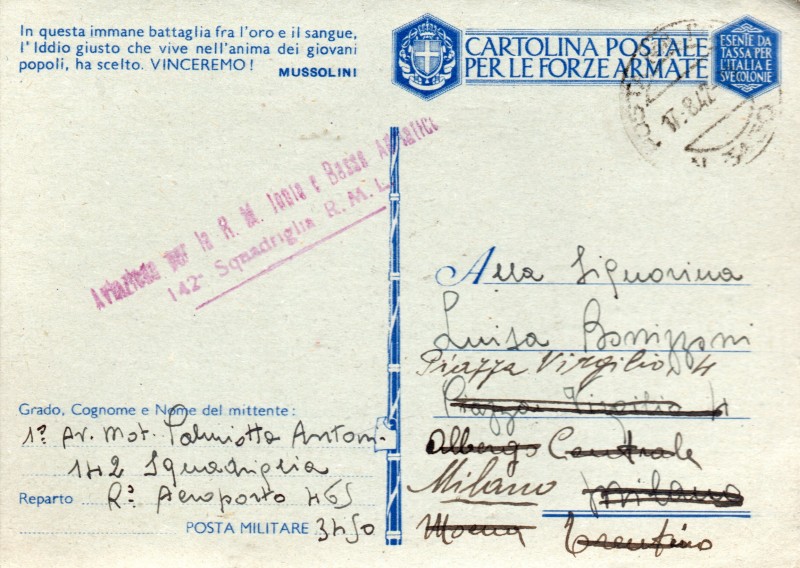 In questa immane battaglia fra l'oro e il sangue,
l'Iddio giusto che vive nell'anima dei giovani
popoli, ha scelto. VINCEREMO!
MUSSOLINI
CARTOLINA POSTALE
PER LE FORZE ARMATE
ESENTE DA
TASSA PER
L'ITALIA E
SVE COLONIE
17.8.42
Aviazione per la R. M. Ionio e Basso Adriatico
142ª Squadriglia R. M. L.
Alla Signorina
Luisa Bonizzoni
Piazza Virgilio, 4
Piazza Virgilio 4
Albergo Centrale
Milano Milano
Moena Trentino
Grado, Cognome e Nome del mittente:
1º Av. Mot. Palmiotta Anton.
142 Squadriglia
Reparto Rº Aeroporto 465
POSTA MILITARE 3450